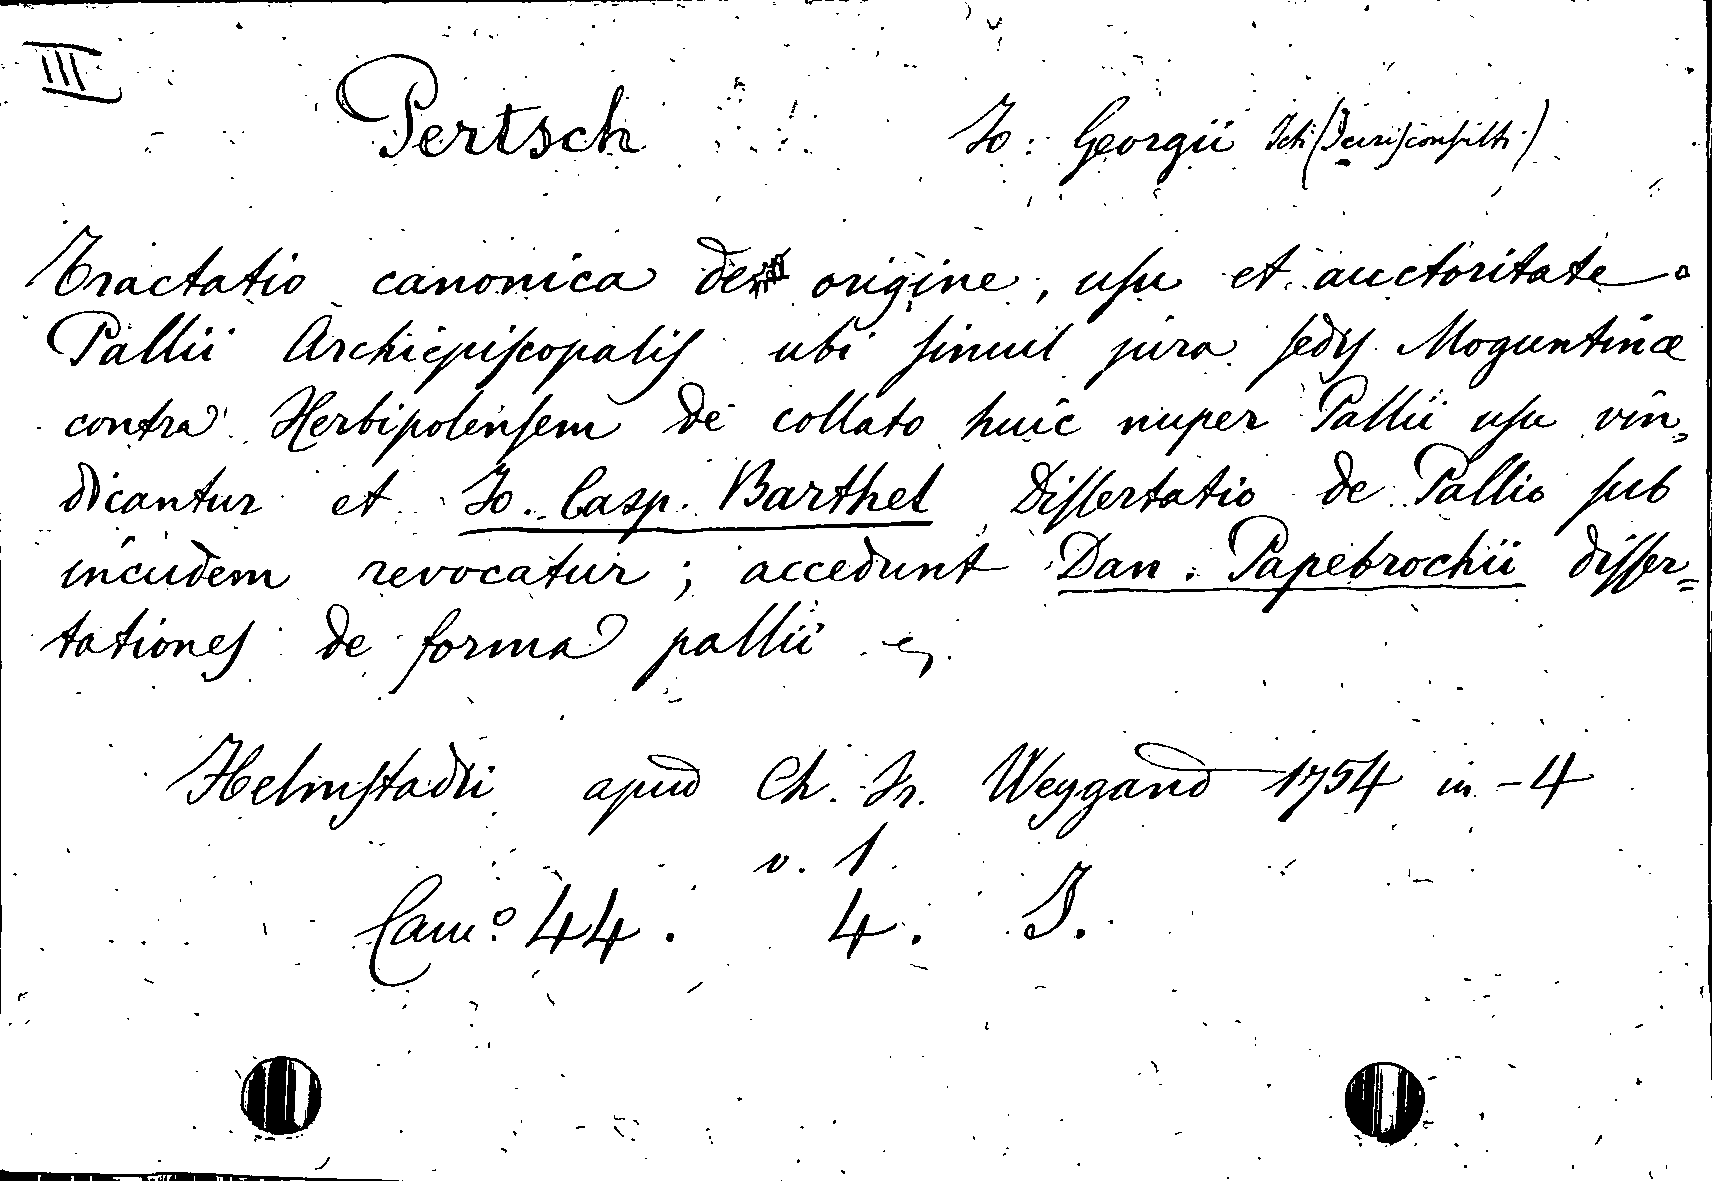 III
Pertsch Jo: Georgii Icti (Jurisconsulti)
Tractatio canonica de origine, usu et auctoritate
Pallii Archiepiscopalis ubi simul jura sedis Moguntinæ
contra Herbipolensem de collato huic nuper Pallii usu vin=
dicantur et Jo. Casp. Barthel Dissertatio de Pallio sub
incudem revocatur; accedunt Dan. Papebrochii disser=
tationes de forma pallii
Helmstadii apud Ch. Fr. Weygand 1754 in-4
v. 1
Cam° 44. 4. J.